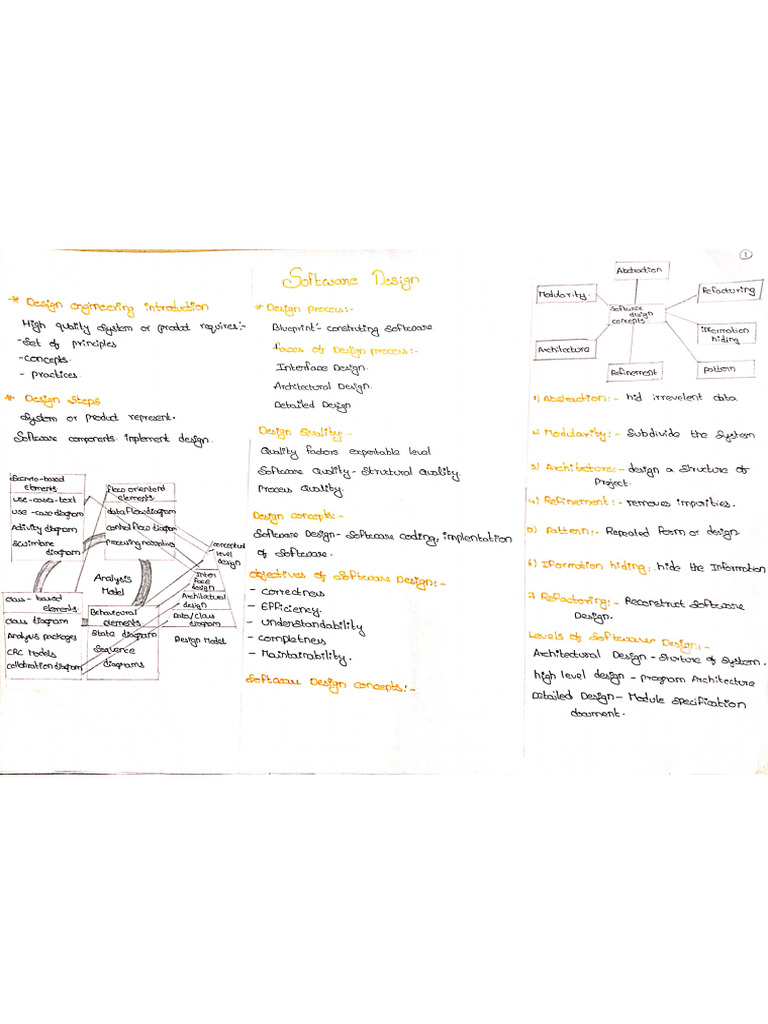 Software Design
* Design engineering introduction
High quality System or product requires:-
-Set of principles
-concepts.
- practices.
* Design Steps
System or product represent.
Software components implement design.
use-cases-text
use-case diagram
Activity diagram
diagram
flow oriented
elements
data flow diagram
control flow diagram
Analysis
Model
class-based
elements.
class diagram
Analysis packages
CRC Models
collabration diagram
Behavioural
elements
State diagram
Sequence
diagrams
conceptual
level
design
Inter
face
design
Architectural
design
Data/class
diagram
Design Model
* Design process:-
Blueprint - constructing Software
Faces of Design process:-
Interface Design.
Architectural Design.
Detailed Design
Design Quality:-
Quality factors expertable level
Software Quality - Structural Quality.
Process Quality.
Design concepts:-
Software Design - Software coding, implentation
of Software.
objectives of Software Design:-
- correctness
- Efficiency.
- understandability
- completness
- Maintainability.
Software Design concepts:-
1
Abstraction
Modularity.
Refacturing
Software
design
concepts
Architecture
Iformation
hiding
Refinement
pattern
1) Abstraction:- hid irrevelent data.
2) Modularity:- Subdivide the System
3) Architecture:- design a Structure of
Project.
4) Refinement:- removes impurities.
5) Pattern:- Repeated form or design.
6) Iformation hiding:. hide the Information
7) Refactoring:- Reconstruct Software
Design.
Levels of Softwaser Design:-
Architectural Design - Sturture of System.
high level design - program Architecture
Detailed Design - Module Specification
document.